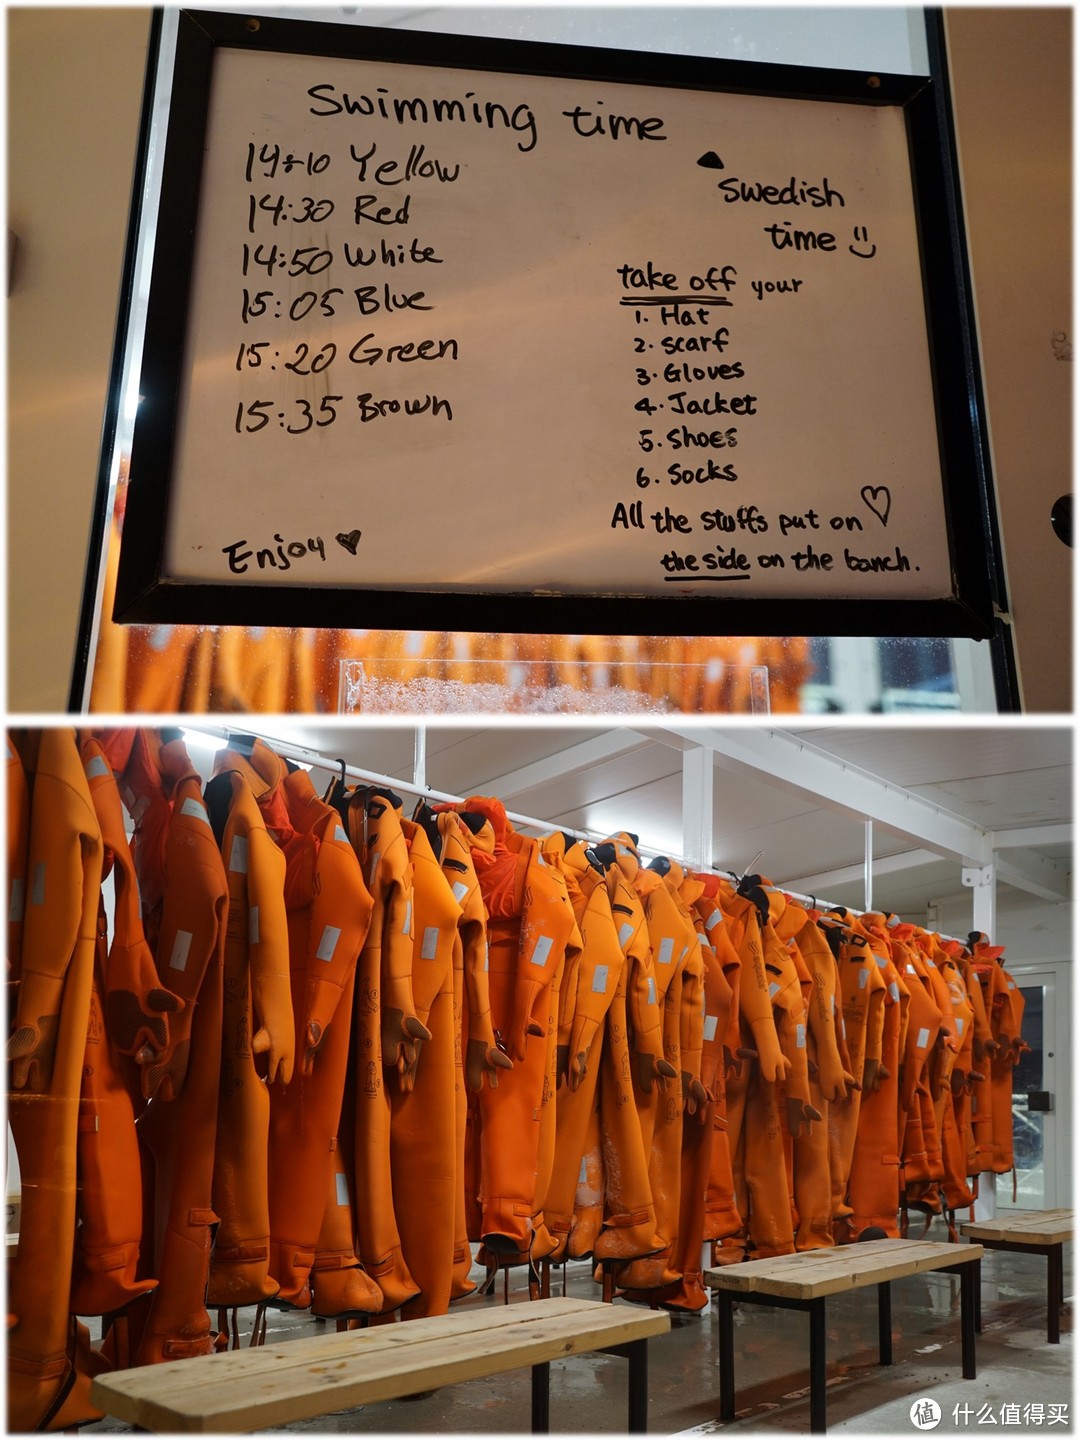 Swimming time
14:10 Yellow
14:30 Red
14:50 White
15:05 Blue
15:20 Green
15:35 Brown
Enjoy
Swedish
time
take off your
1. Hat
2. scarf
3. Gloves
4. Jacket
5. Shoes
6. Socks
All the stuffs put on
the side on the banch.
值 什么值得买